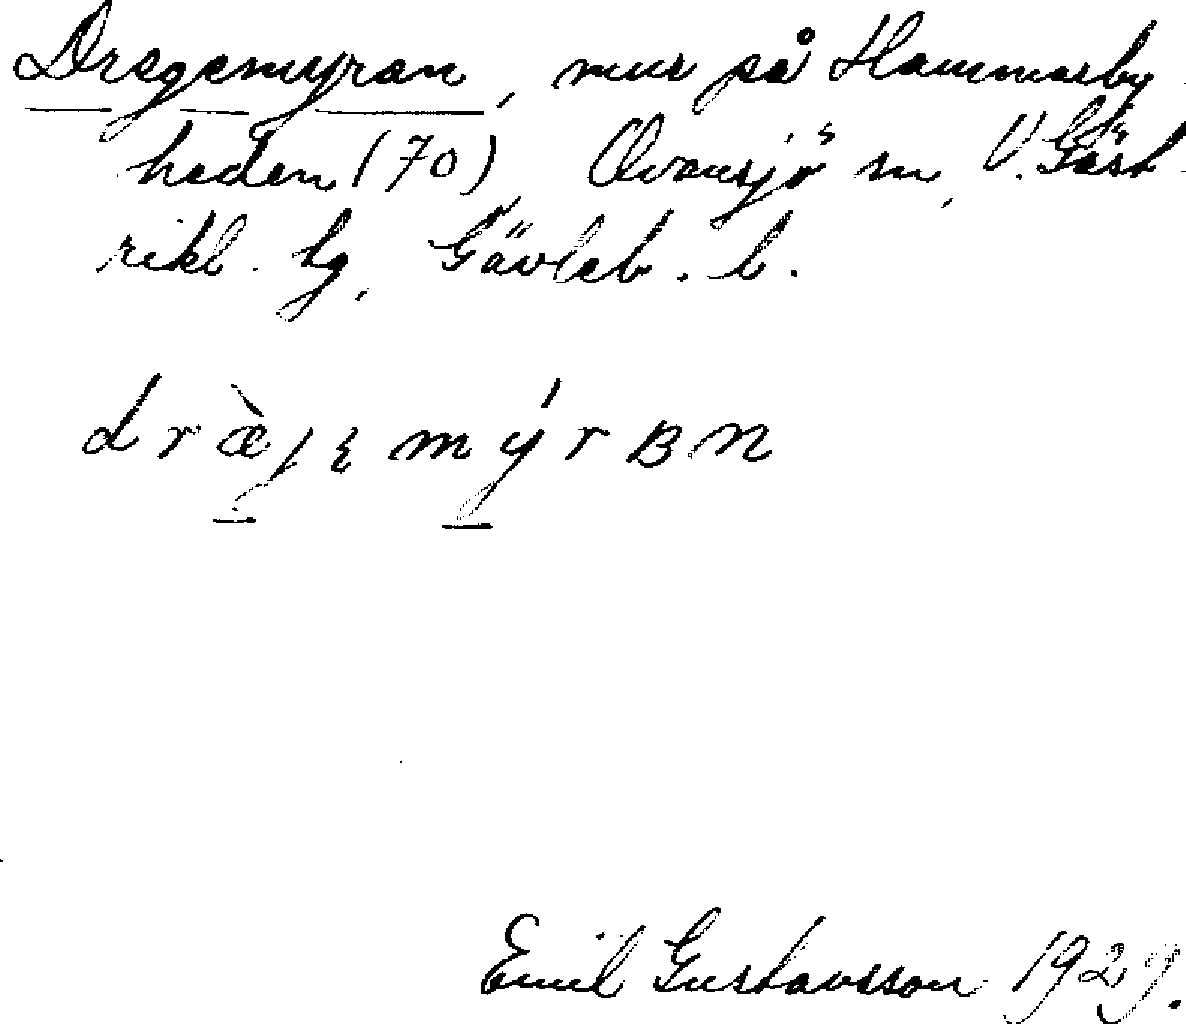 Dragemyran, mur på Hammarby
heden (70) Ovansjö sn, V. Gäst
rikl. hg, Gävleb. l.
Emil Gustavsson 1929.